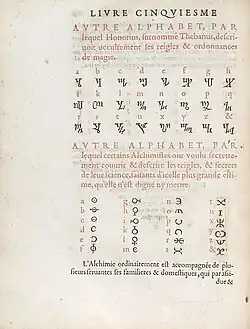 LIVRE CINQVIESME
AVTRE ALPHABET, PAR
lequel Honorius, surnommé Thebanus, descri-
uoit occultement ses reigles & ordonnances
de magie.
a b c d e f g h
i k l m n o p q
r s t u x y z &
AVTRE ALPHABET, PAR
lequel certains Alchimistes ont voulu secrette-
ment couurir & descrire les reigles, & secrets
de leur science, faisants d'icelle plus grande esti-
me, qu'elle n'est digne ny merite.
a g n t
b h o u
c i p x
d k q y
e l r z
f m s &
L'Alchimie ordinairement est accompagnée de plu-
sieurs seruantes ses familieres & domestiques, qui par
due &